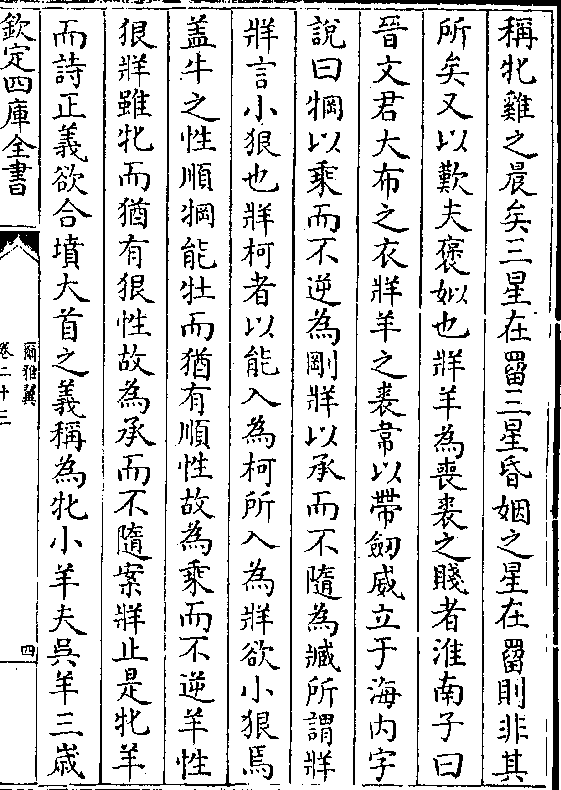 稱牝雞之晨矣三星在罶三星昏姻之星在罶則非其
所矣又以歎夫褒姒也牂羊為喪裘之賤者淮南子曰
晉文君大布之衣牂羊之裘韋以帶劒威立于海内字
說曰犅以乘而不逆為剛牂以承而不隨為臧所謂牂
牂言小狠也牂柯者以能入為柯所入為牂欲小狠焉
盖牛之性順犅能牡而猶有順性故為乘而不逆羊性
狠牂雖牝而猶有狠性故為承而不隨案牂止是牝羊
而詩正義欲合墳大首之義稱為牝小羊夫吳羊三歲
欽定四庫全書
爾雅翼
卷二十三
四